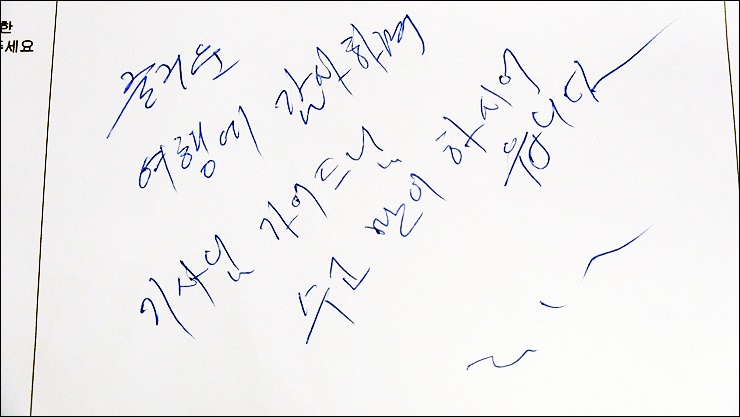 한
주세요
즐거운
여행에 감사하며
기사님 가이드님
수고 많이 하시었
습니다